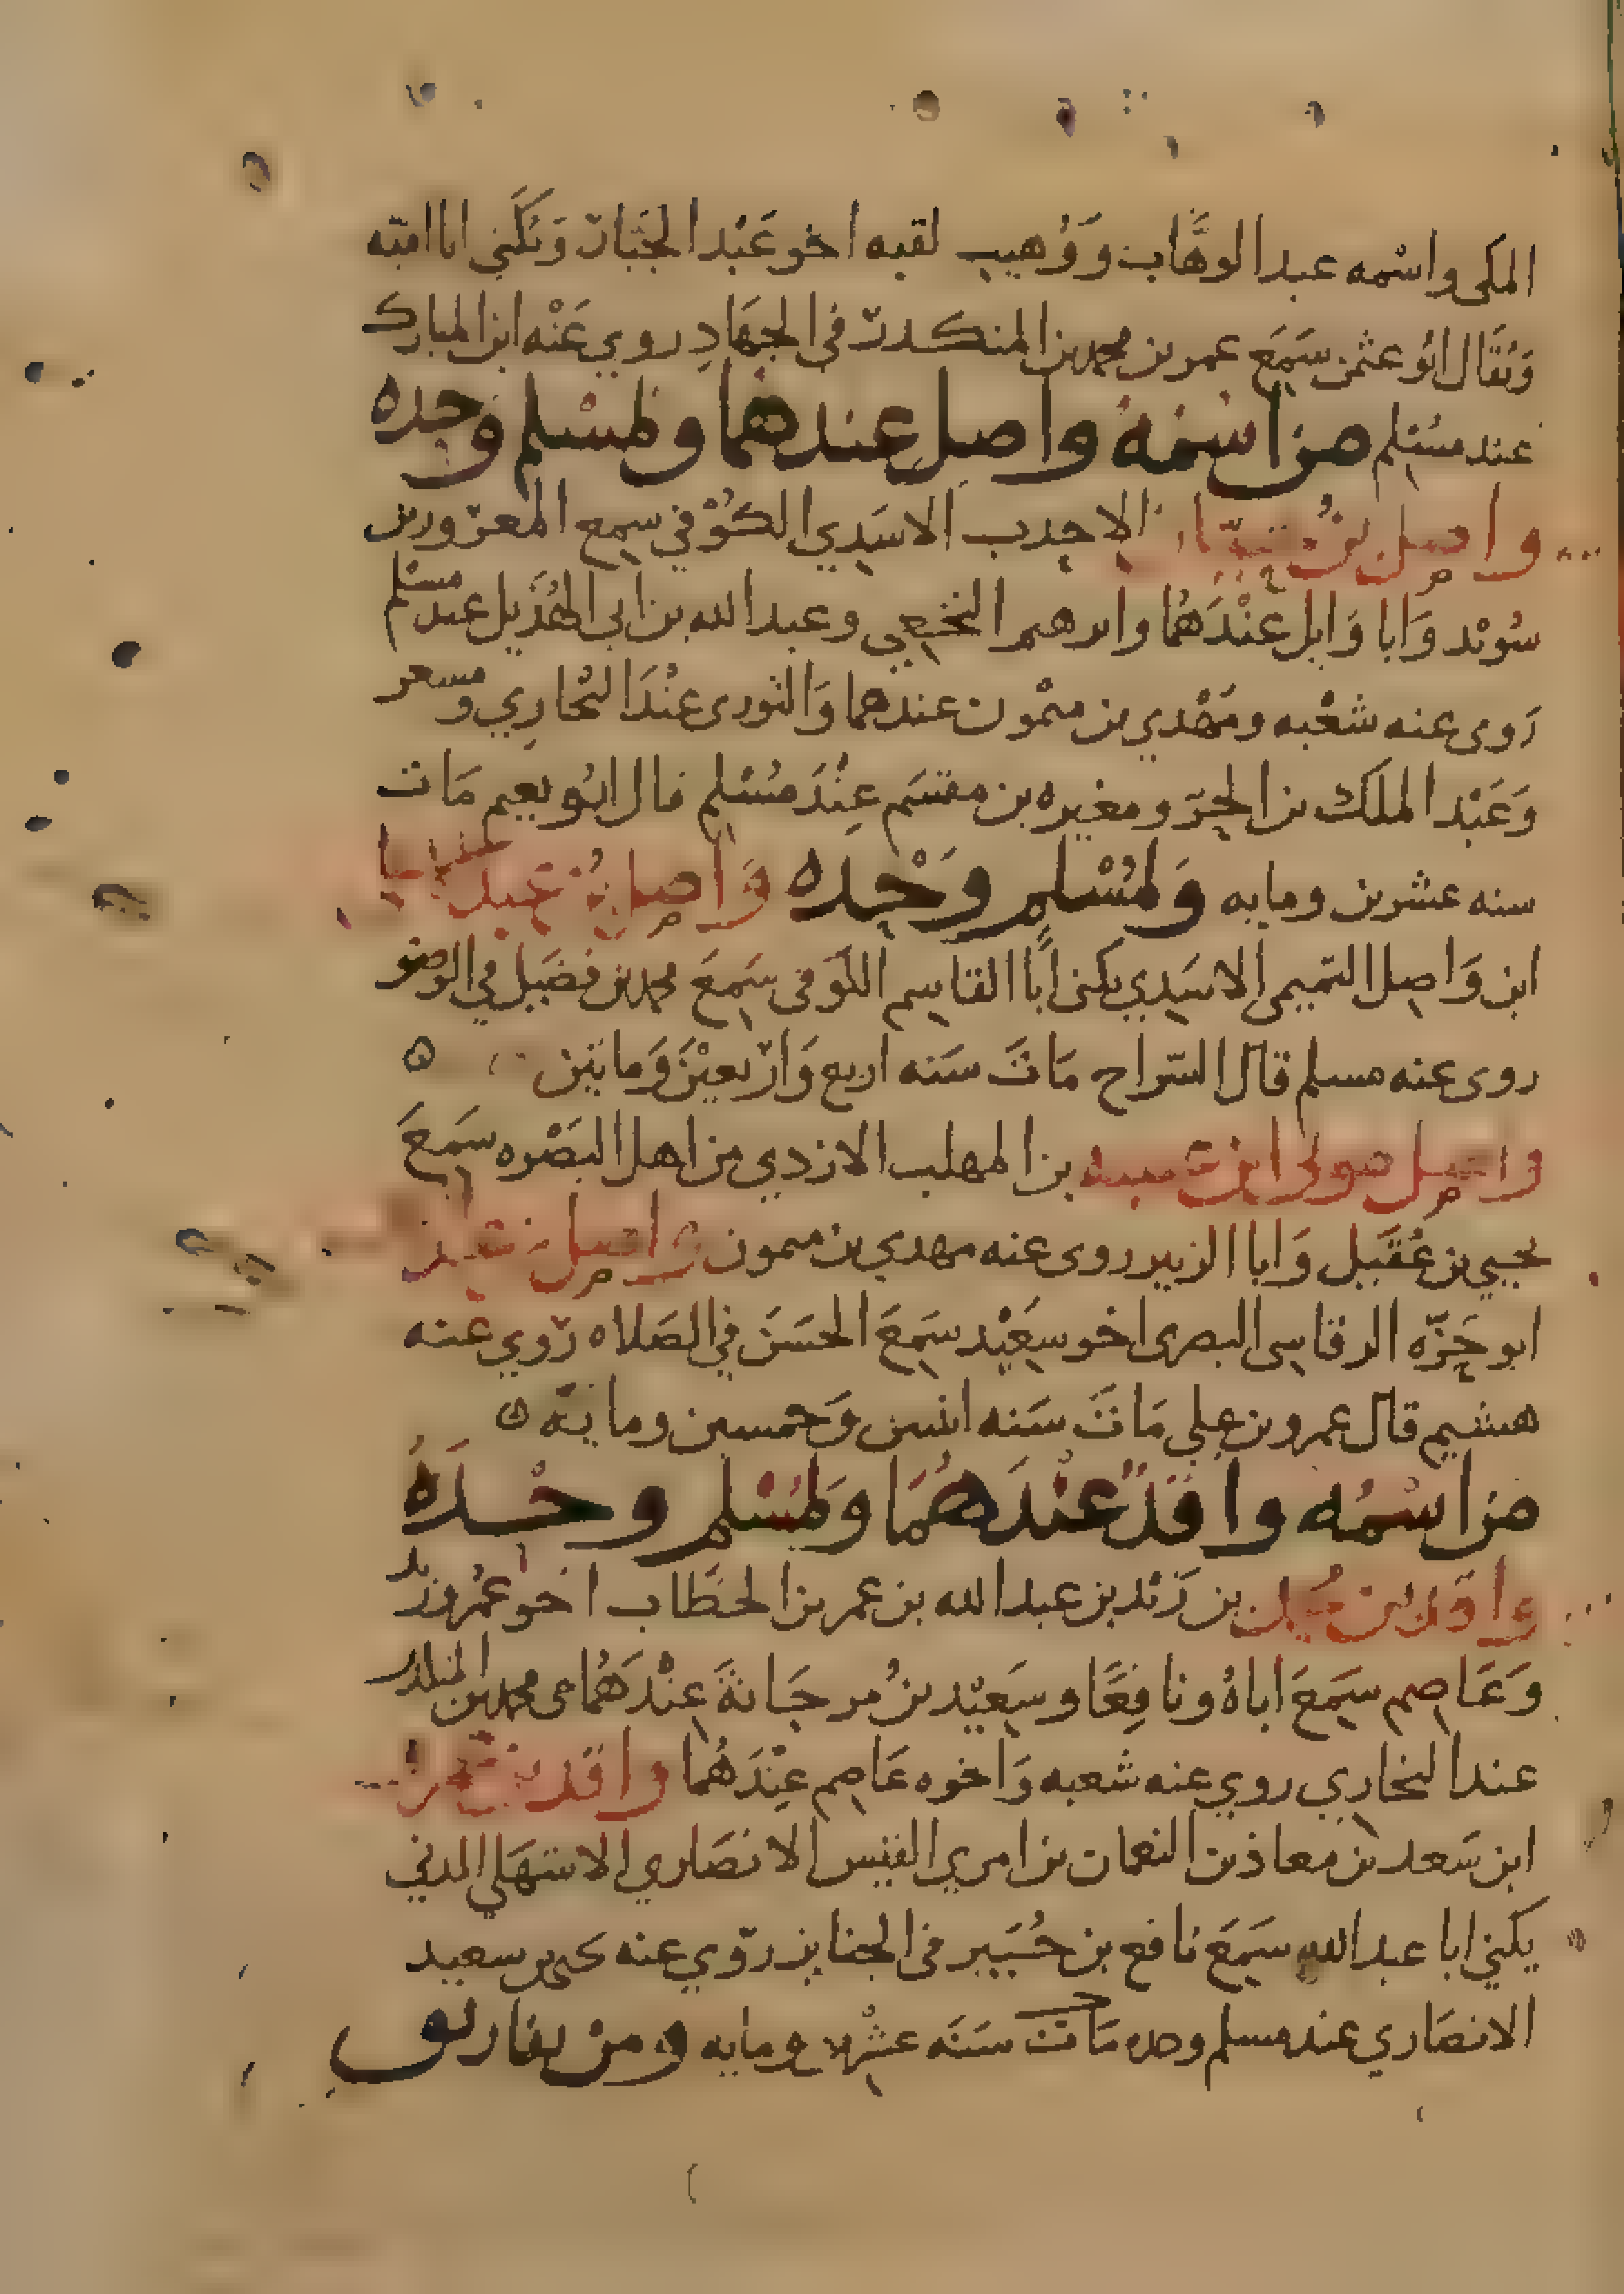 المكى واسمه عبد الوهاب ووهيب لقبه اخو عبد الجبار ويكنى ابا امية
ويقال ابو عثمن سمع عمر بن محمد بن المنكدر فى الجهاد روي عنه ابن المبارك
عند مسلم من اسمه واصل عندهما ولمسلم وحده
واصل بن حيان الاحدب الاسدي الكوفي سمع المعرور بن
سويد وابا وايل عندهما وابرهيم النخعي وعبد الله بن ابي الهذيل عند مسلم
روى عنه شعبه ومهدي بن ميمون عندهما والثورى عند البخاري ومسعر
وعبد الملك بن ابجر ومغيره بن مقسم عند مسلم قال ابو نعيم مات
سنه عشرين ومايه ولمسلم وحده واصل بن عبد الاعلى
ابن واصل التميمى الاسدي يكنى ابا القاسم الكوفى سمع محمد بن فضيل في الوضو
روى عنه مسلم قال السراج مات سنه اربع واربعين وماتين ه
واصل مولى ابن عيينه بن المهلب الازدي من اهل البصره سمع
يحيي بن عقيل وابا الزبير روى عنه مهدي بن ميمون واصل بن عبد الرحمن
ابو حره الرقاسى البصرى اخو سعيد سمع الحسن في الصلاه روي عنه
هشيم قال عمرو بن علي مات سنه اثنين وخمسين ومايه ه
من اسمه واقد عندهما ولمسلم وحده
واقد بن محمد بن زيد بن عبد الله بن عمر بن الخطاب اخو عمر وزيد
وعاصم سمع اباه ونافعا وسعيد بن مرجانة عندهما عى محمد بن المنكدر
عند البخاري روي عنه شعبه واخوه عاصم عندهما واقد بن عمرو
ابن سعد بن معاذ بن النعمان بن امري القيس الانصاري الاشهلي المدني
يكني ابا عبد الله سمع نافع بن جبير فى الجنايز روي عنه يحيى بن سعيد
الانصاري عند مسلم وحده مات سنه عشرين ومايه ه ومن تفاريق